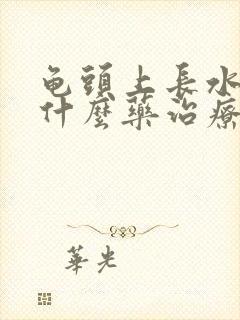 龟頭上長水
什麼藥治療
華光